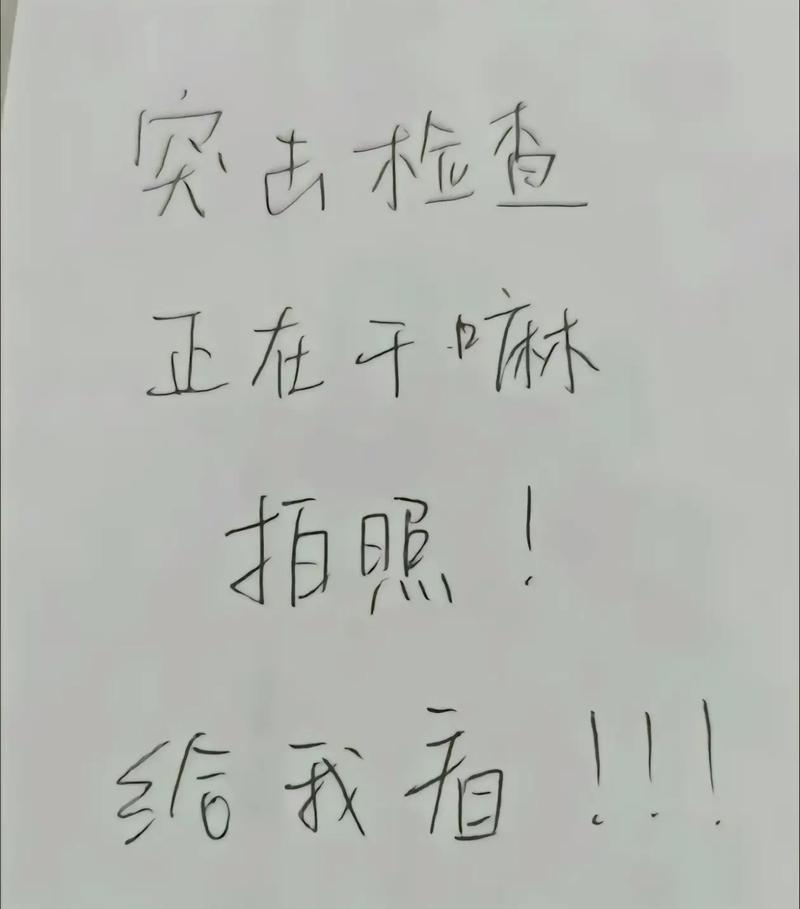 突击检查
正在干嘛
拍照！
给我看！！！